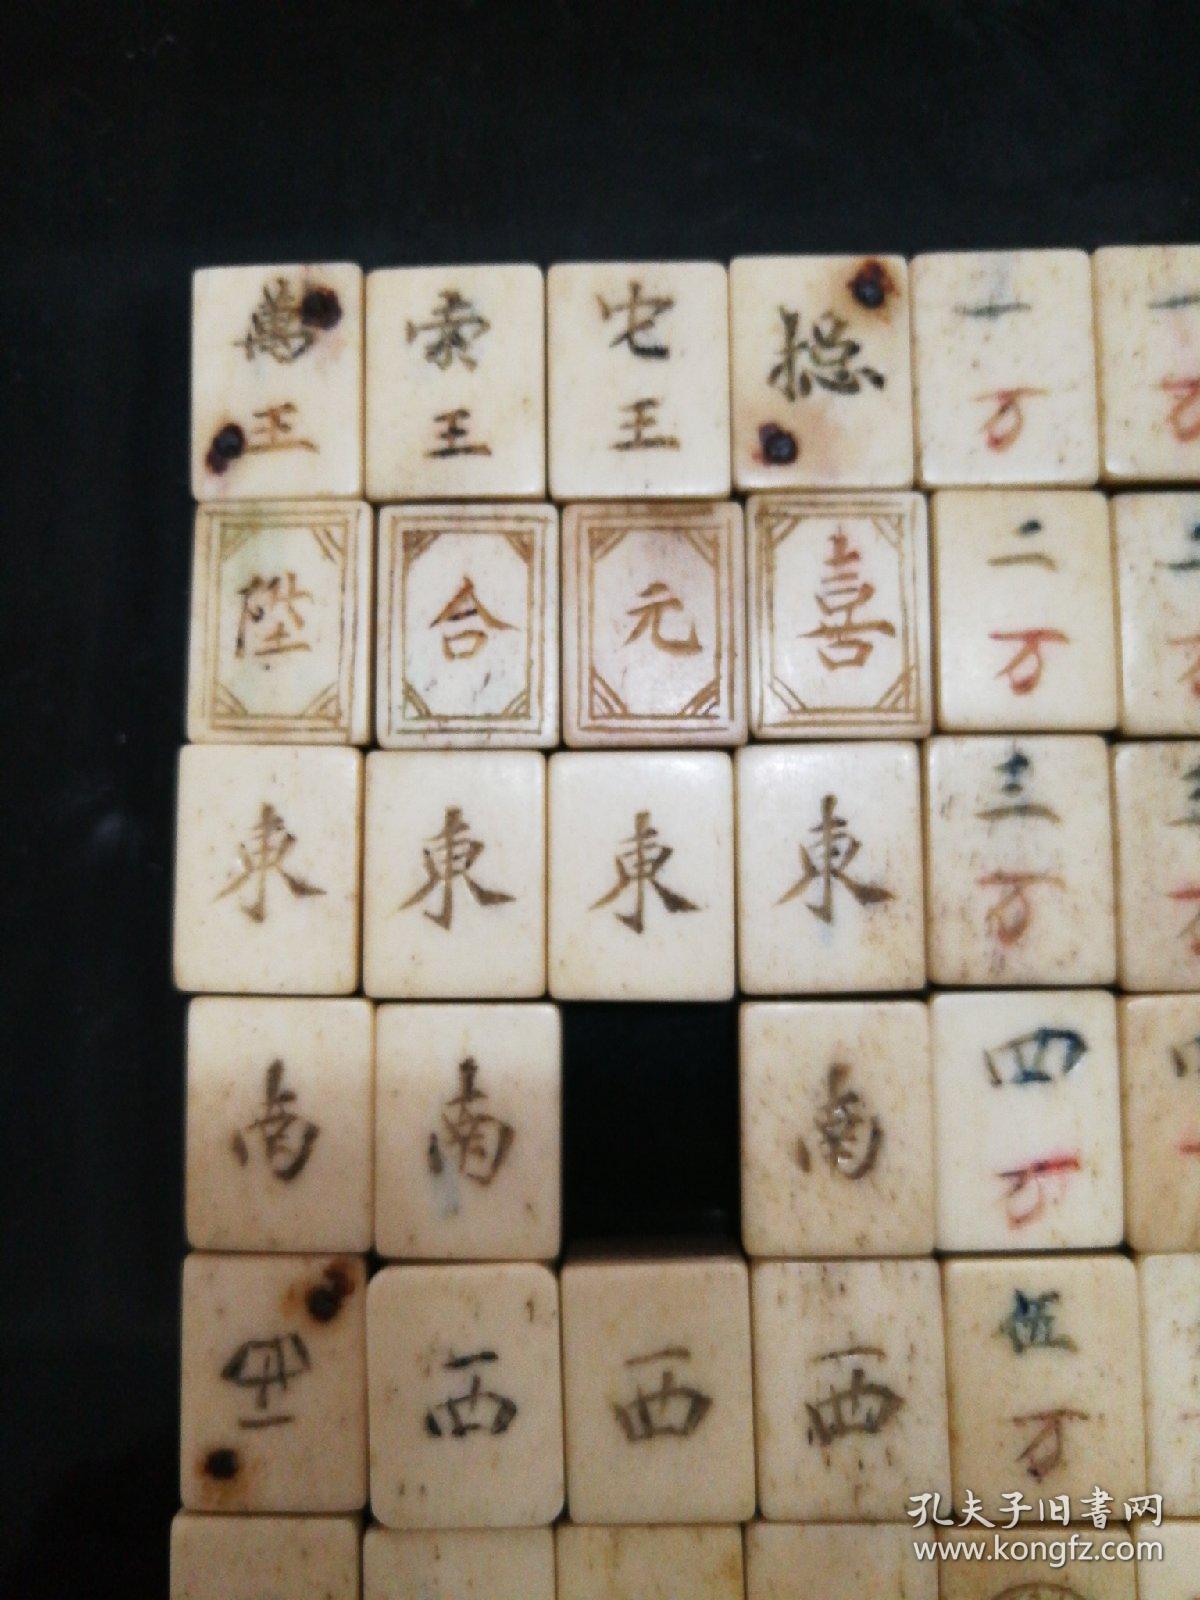 萬王 索王 㐌王 揔 一万 一万
陞 合 元 喜 二万 二万
東 東 東 東 三万 三万
南 南 南 四万
西 西 西 西 伍万
孔夫子旧书网
www.kongfz.com